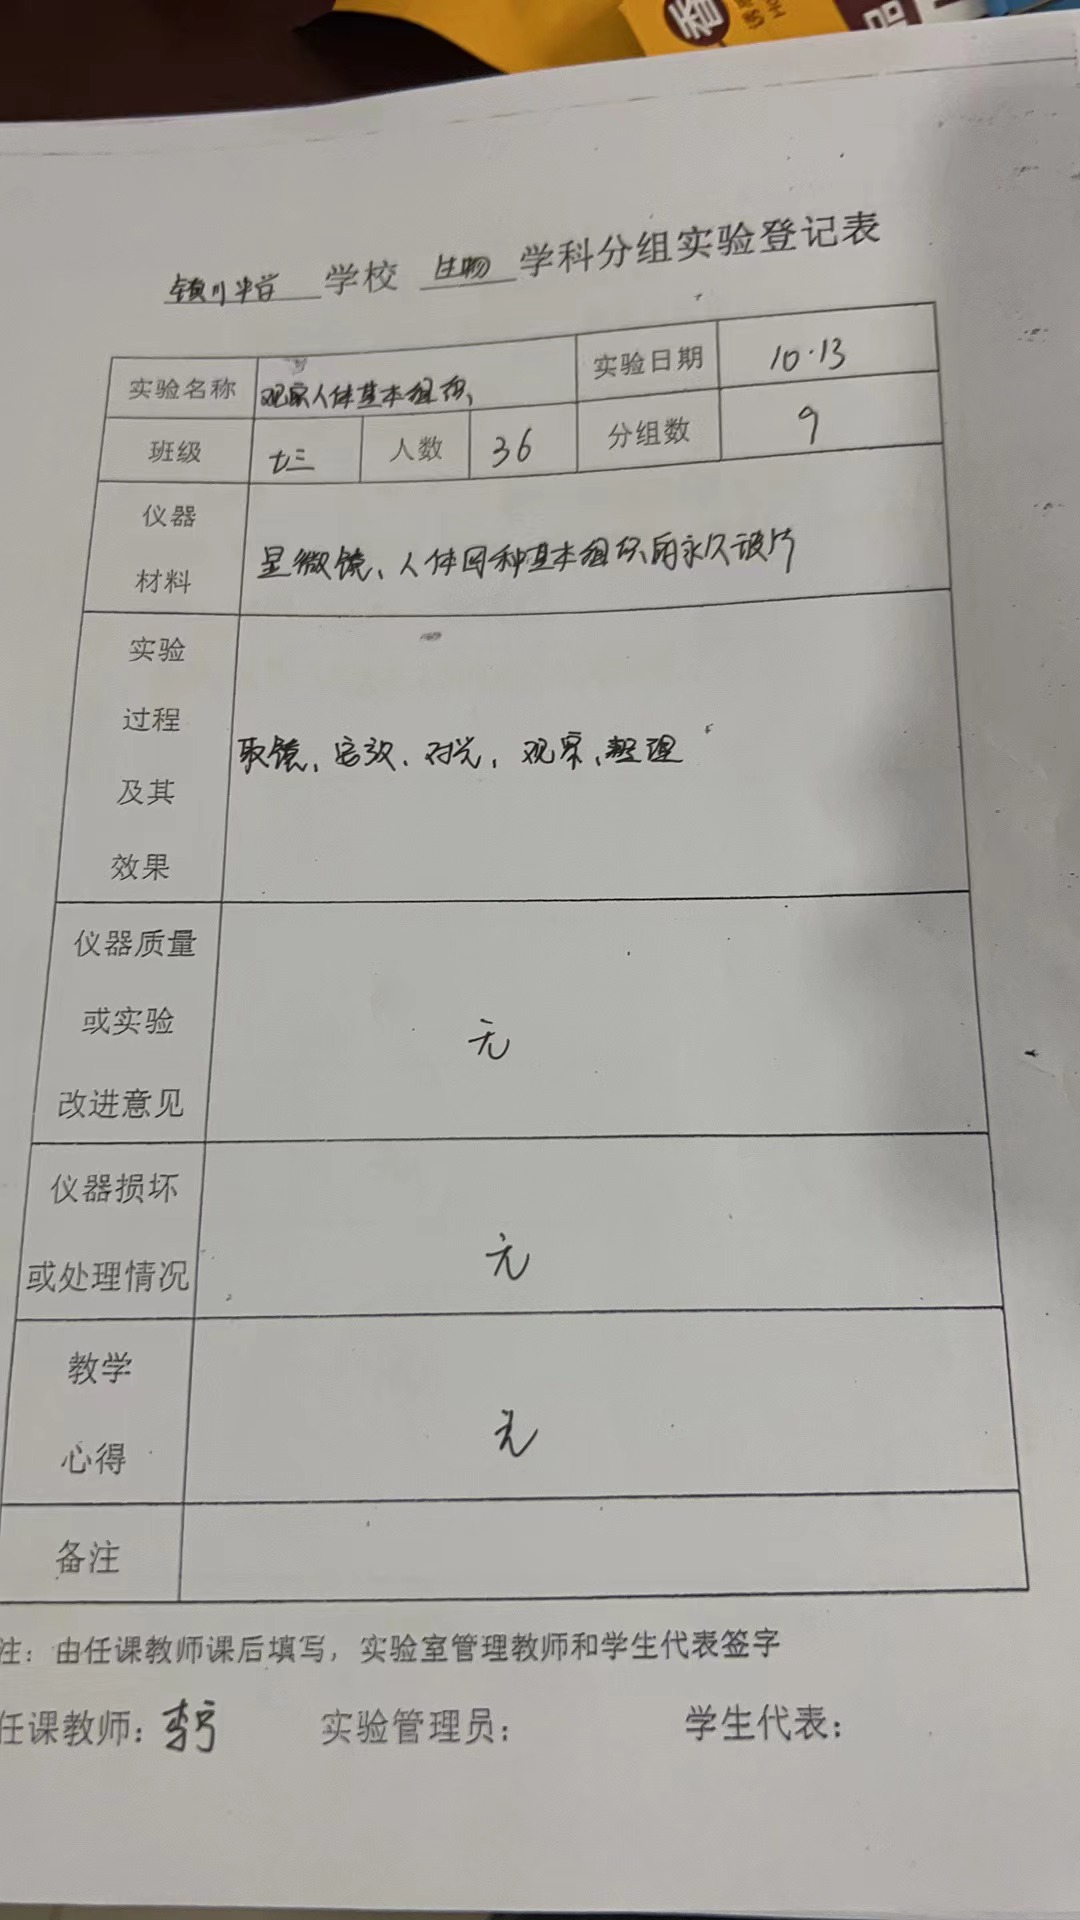 香
品
镇川中学 学校 生物 学科分组实验登记表
实验名称 观察人体基本组织 实验日期 10·13
班级 七三 人数 36 分组数 9
仪器
材料
显微镜、人体四种基本组织的永久玻片
实验
过程
及其
效果
取镜、安放、对光、观察、整理
仪器质量
或实验
改进意见
无
仪器损坏
或处理情况
无
教学
心得
无
备注
注：由任课教师课后填写，实验室管理教师和学生代表签字
任课教师：李 实验管理员： 学生代表：